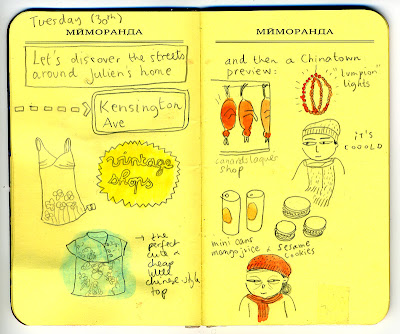 Tuesday (30th)
МИМОРАНДА
Let's discover the streets
around Julien's home
Kensington
Ave
vintage
shops
the
perfect
cute &
cheap
little
chinese-style
top
МИМОРАНДА
and then a Chinatown
preview:
"lumpion"
lights
canards laqués
shop
it's
COOOLD
mini cans
mango juice & sesame
cookies